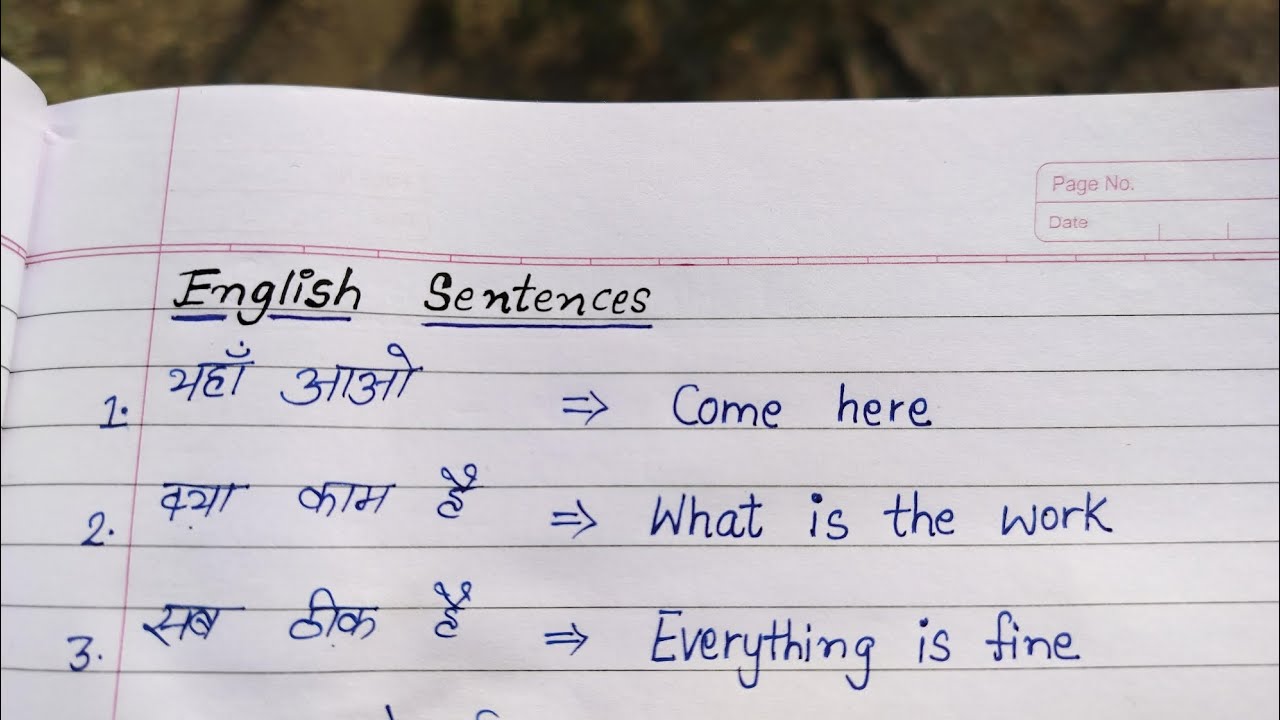 Page No.
Date
English Sentences
1. यहाँ आओ ⇒ Come here
2. क्या काम है ⇒ What is the work
3. सब ठीक है ⇒ Everything is fine